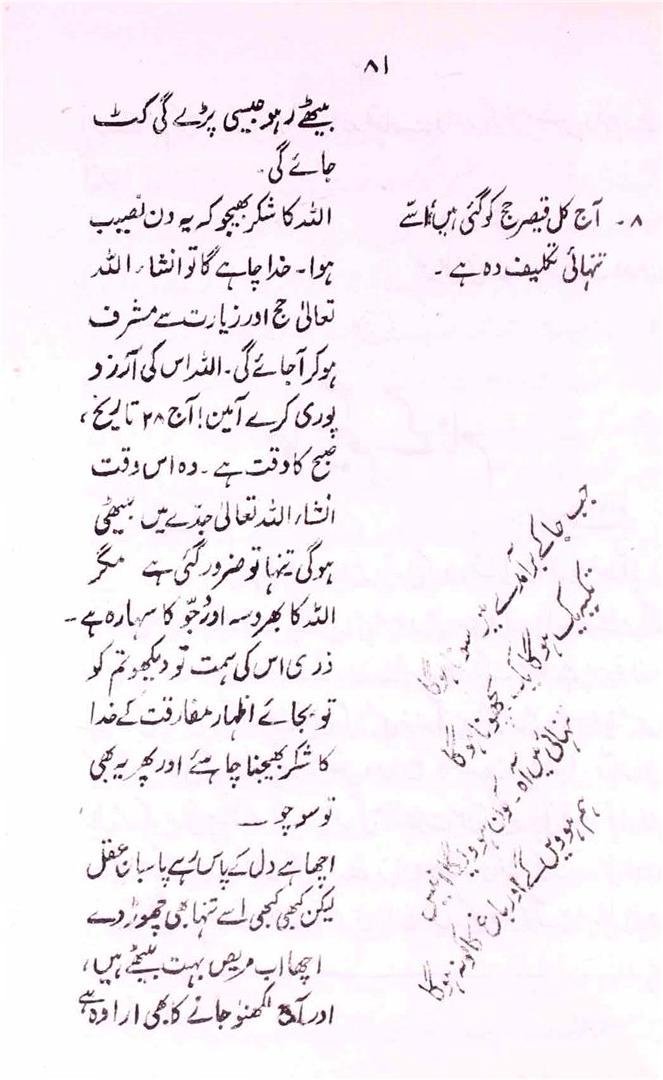 ۸۱
بیٹھے رہو جیسی پڑے گی کٹ
جائے گی۔
۸۔ آج کل قیصر حج کو گئی ہیں، اسّے
تنہائی تکلیف دہ ہے۔
اللہ کا شکر بھیجو کہ یہ دن نصیب
ہوا۔ خدا چاہے گا تو انشاء اللہ
تعالیٰ حج اور زیارت سے مشرف
ہو کر آجائے گی۔ اللہ اس کی آرزو
پوری کرے آمین! آج ۲۸ تاریخ،
صبح کا وقت ہے۔ وہ اس وقت
انشاء اللہ تعالیٰ جدّے میں بیٹھی
ہوگی تنہا تو ضرور گئی ہے مگر
اللہ کا بھروسہ اور رُجّو کا سہارہ ہے۔
ذری اس کی ہمت تو دیکھو تم کو
تو بجائے اظہار مفارقت کے خدا
کا شکر بھیجنا چاہئے اور پھر یہ بھی
تو سوچو —
اچھا ہے دل کے پاس رہے پاسبان عقل
لیکن کبھی کبھی اسے تنہا بھی چھوڑ دے
اچھا اب مریض بہت بیٹھے ہیں،
اور آج لکھنؤ جانے کا بھی ارادہ ہے
جب خاک پر سونا ہوگا
تکیہ ہوگا نہ بچھونا ہوگا
تنہائی میں آہ۔ کون ہووے گا انیس
ہم ہوویں گے اور قبر کا کونہ ہوگا